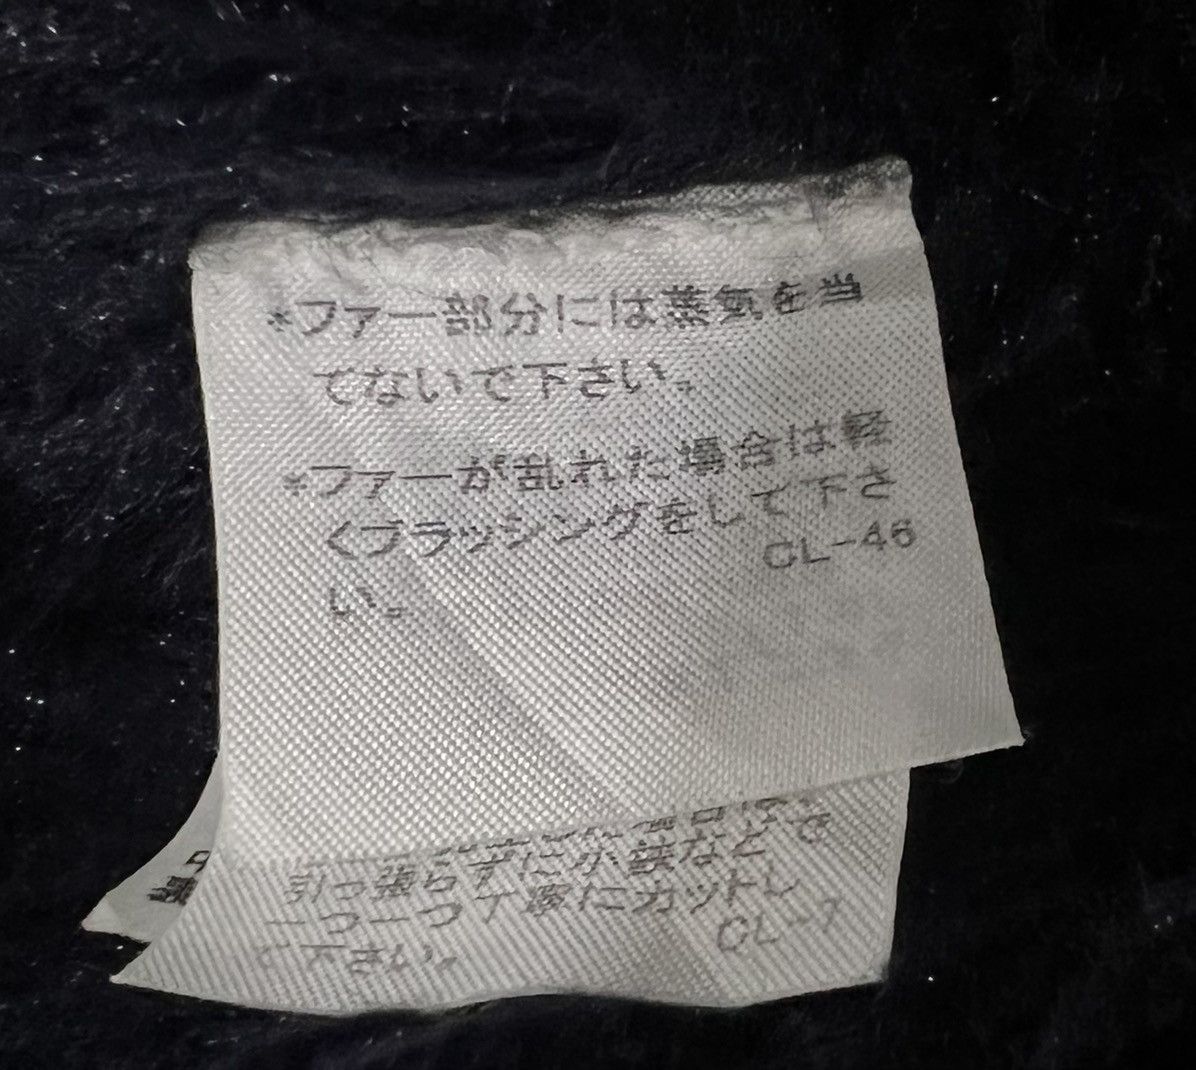 *ファー部分には蒸気を当
てないで下さい。
*ファーが乱れた場合は軽
くブラッシングをして下さ
い。
CL-46
引っ張らずに小鋏などで
一つ一つ丁寧にカットし
て下さい。
CL-7